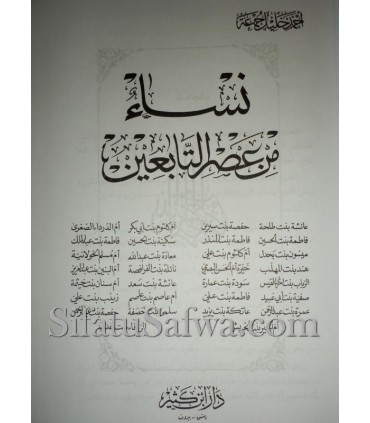 أحمد خليل جمعة
نساء
من عصر التابعين
عائشة بنت طلحة حفصة بنت سيرين أم كلثوم بنت أبي بكر أم الدرداء الصغرى
فاطمة بنت الحسين فاطمة بنت المنذر سكينة بنت الحسين فاطمة بنت عبد الملك
ميسون بنت بحدل أم كلثوم بنت علي معاذة بنت عبد الله أم مسلم الخولانية
هند بنت المهلب خيرة أم الحسن البصري نائلة بنت الفرافصة أم البنين بنت عبد العزيز
الرباب بنت امرئ القيس سودة بنت عمارة عائشة بنت سعد أم سنان بنت خيثمة
صفية بنت أبي عبيد فاطمة بنت علي أم عاصم بنت عاصم زينب بنت علي
عمرة بنت عبد الرحمن عاتكة بنت يزيد سلمى بنت خصفة حفصة بنت عبد الرحمن
SilatuSafwa.com
دار ابن كثير
دمشق - بيروت